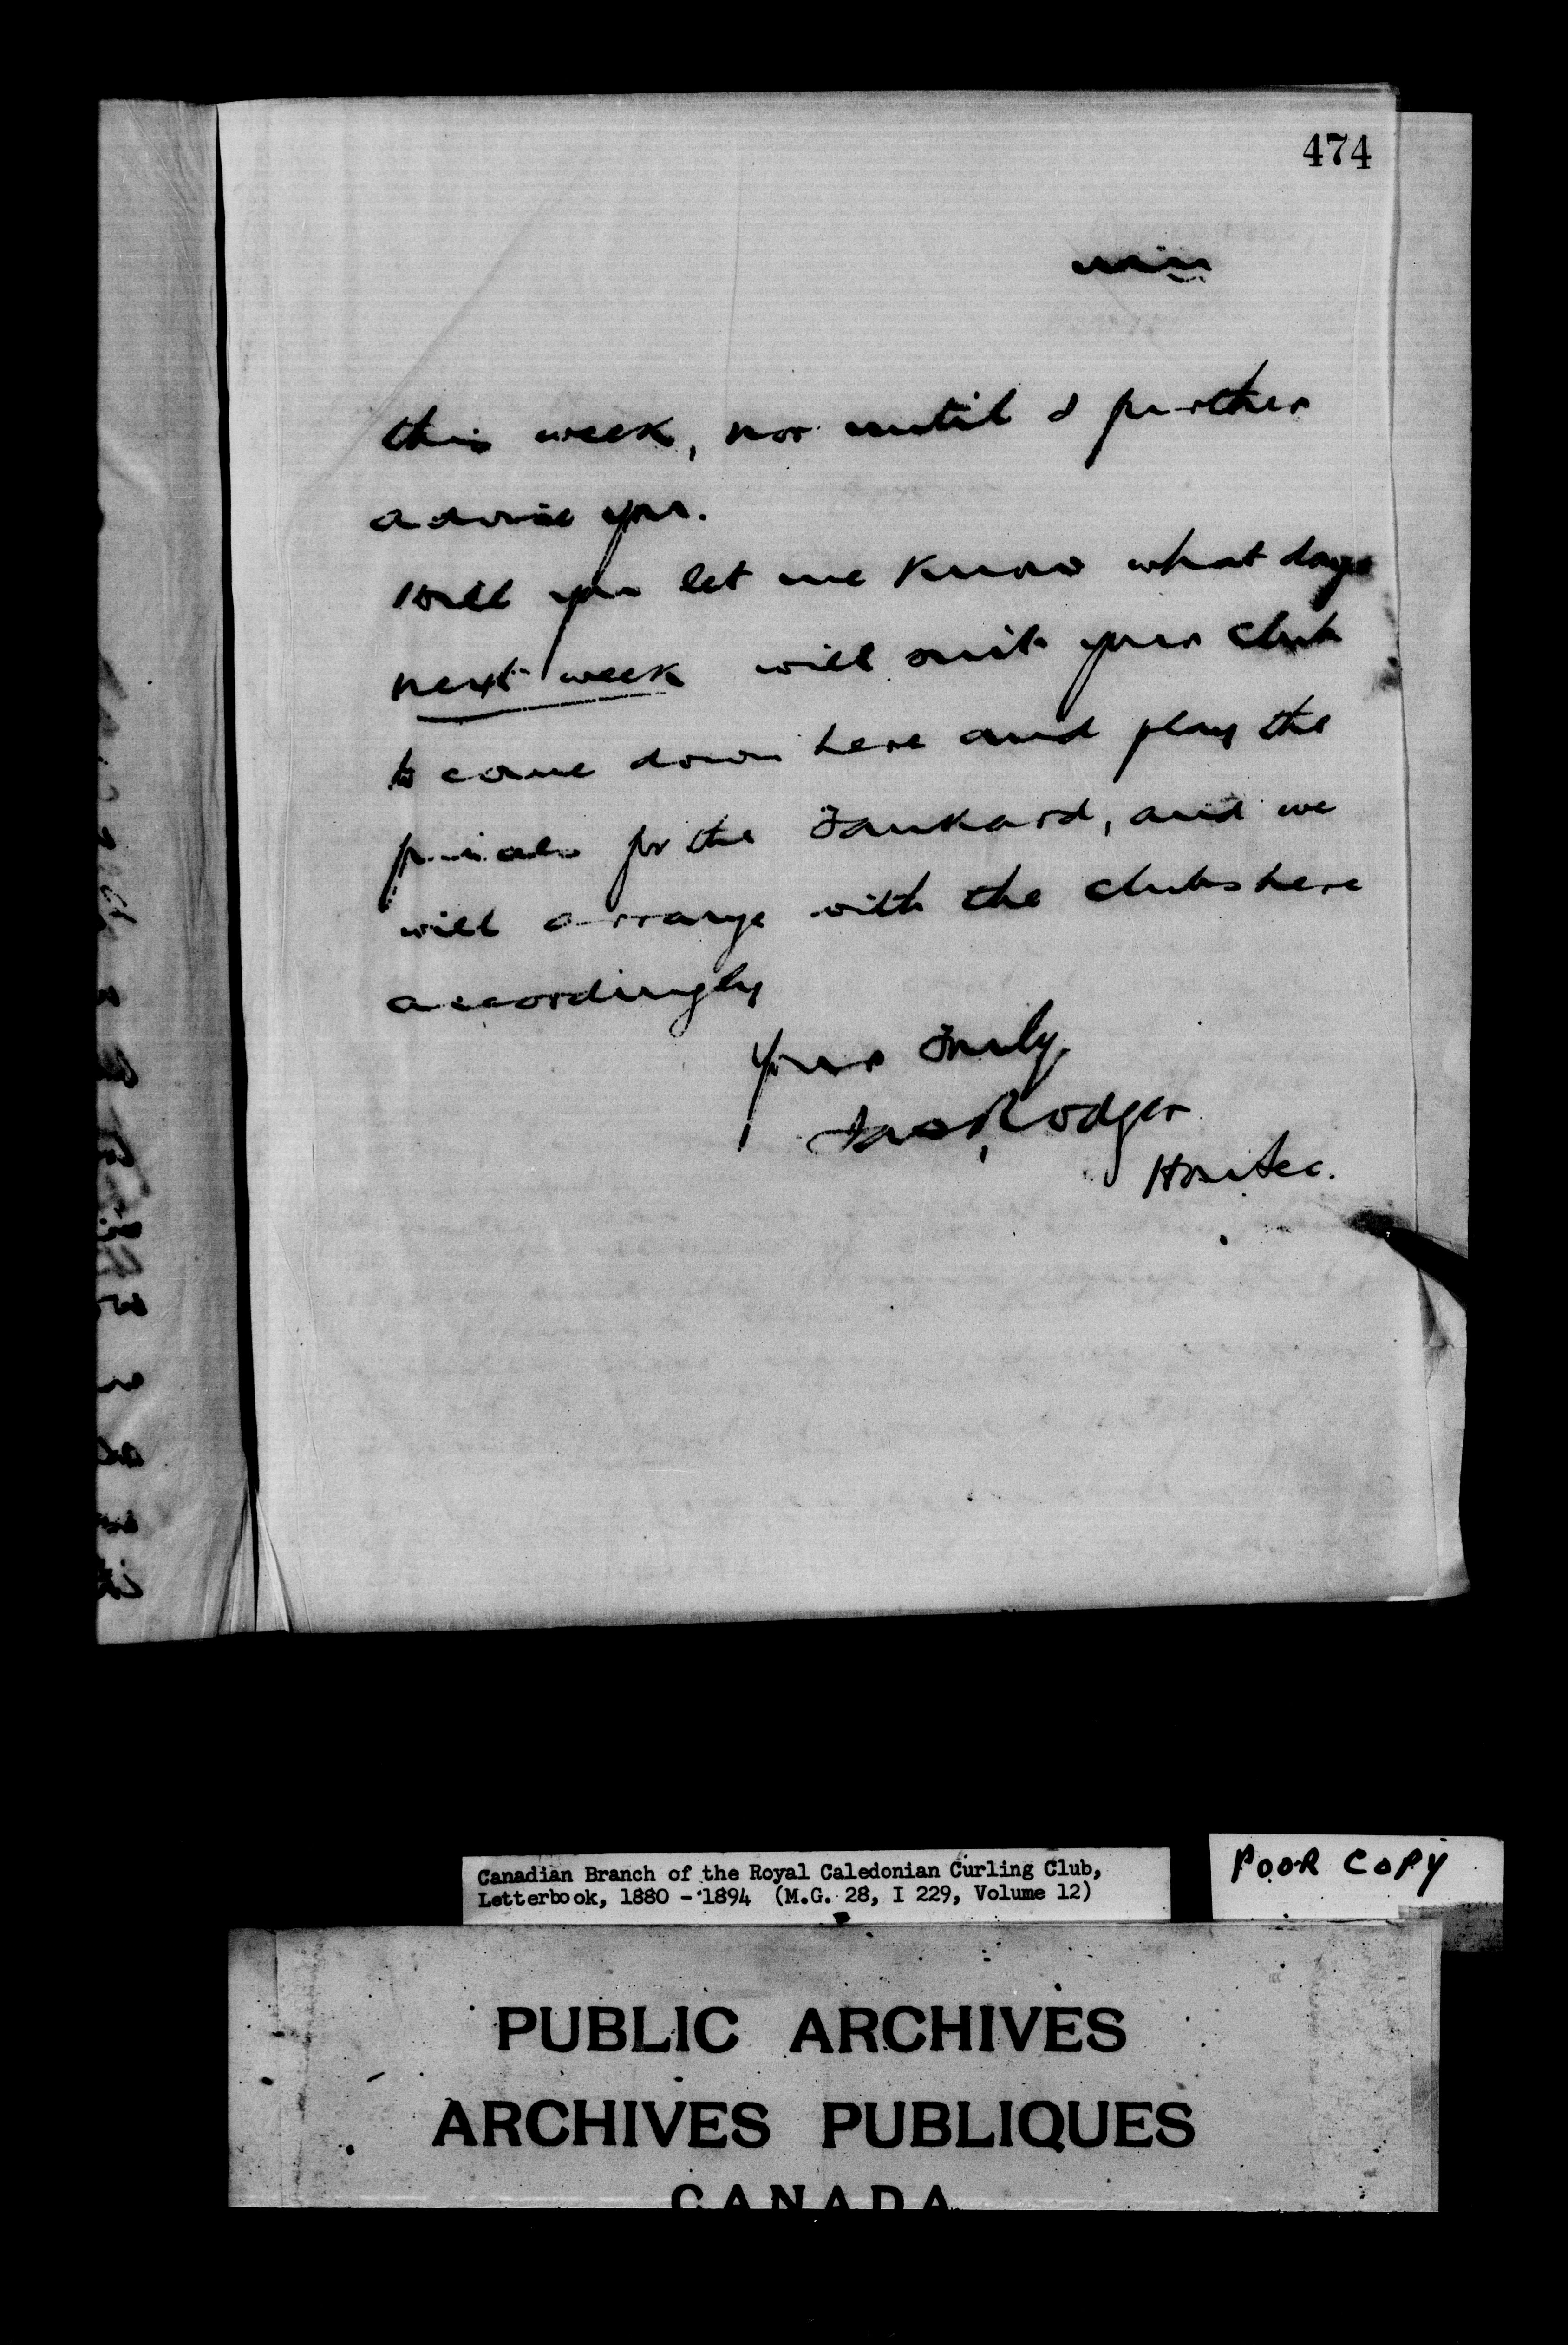 474
this week, nor until I further
advise you.
Will you let me know what days
next week will suit your Club
to come down here and play the
finals for the Tankard, and we
will arrange with the clubs here
accordingly
Yours Truly,
Jas Rodger
Hon Sec.
Canadian Branch of the Royal Caledonian Curling Club,
Letterbook, 1880 - 1894 (M.G. 28, I 229, Volume 12)
POOR COPY
PUBLIC ARCHIVES
ARCHIVES PUBLIQUES
CANADA